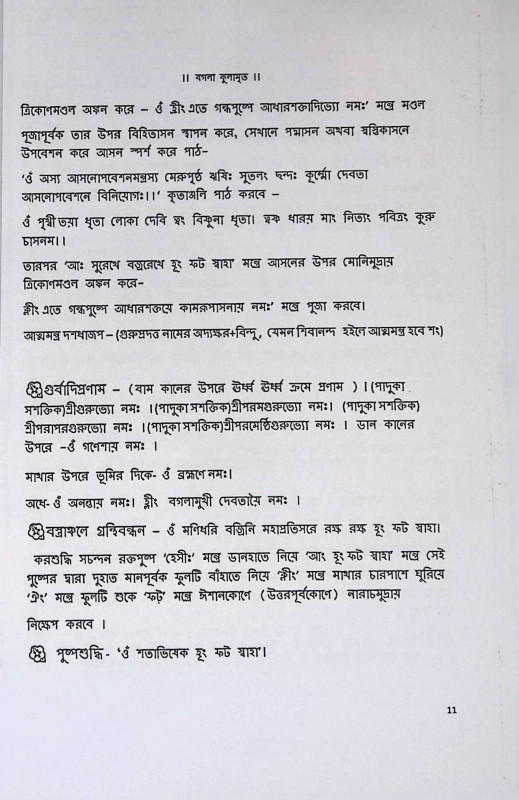 ।। বগলা কুলামৃত ।।
ত্রিকোণমণ্ডল অঙ্কন করে – ওঁ হ্রীং এতে গন্ধপুষ্পে আধারশক্তাদিভ্যো নমঃ' মন্ত্রে মণ্ডল
পূজাপূর্বক তার উপর বিহিতাসন স্থাপন করে, সেখানে পদ্মাসন অথবা স্বস্বিকাসনে
উপবেশন করে আসন স্পর্শ করে পাঠ–
'ওঁ অস্য আসনোপবেশনমন্ত্রস্য মেরুপৃষ্ঠ ঋষিঃ সুতলং ছন্দঃ কূর্ম্মো দেবতা
আসনোপবেশনে বিনিয়োগঃ।।' কৃতাঞ্জলি পাঠ করবে –
ওঁ পৃথ্বী ত্বয়া ধৃতা লোকা দেবি ত্বং বিষ্ণুনা ধৃতা। ত্বঞ্চ ধারয় মাং নিত্যং পবিত্রং কুরু
চাসনম।।
তারপর 'আঃ সুরেখে বজ্ররেখে হূং ফট স্বাহা' মন্ত্রে আসনের উপর যোনিমুদ্রায়
ত্রিকোণমণ্ডল অঙ্কন করে–
ক্লীং এতে গন্ধপুষ্পে আধারশক্তয়ে কামরূপাসনায় নমঃ' মন্ত্রে পূজা করবে।
আত্মমন্ত্র দশধাজপ – (গুরুপ্রদত্ত নামের অদ্যক্ষর+বিন্দু , যেমন শিবানন্দ হইলে আত্মমন্ত্র হবে শং)
গুর্বাদিপ্রণাম – (বাম কানের উপরে ঊর্ধ্ব ঊর্ধ্ব ক্রমে প্রণাম ) । (পাদুকা
সশক্তিক)শ্রীগুরুভ্যো নমঃ ।(পাদুকা সশক্তিক)শ্রীপরমগুরুভ্যো নমঃ। (পাদুকা সশক্তিক)
শ্রীপরাপরগুরুভ্যো নমঃ ।(পাদুকা সশক্তিক)শ্রীপরমেষ্ঠিগুরুভ্যো নমঃ । ডান কানের
উপরে –ওঁ গণেশায় নমঃ ।
মাথার উপরে ভূমির দিকে- ওঁ ব্রহ্মণে নমঃ।
অধে- ওঁ অনন্তায় নমঃ। হ্লীং বগলামুখী দেবতায়ৈ নমঃ ।
বস্ত্রাঞ্চলে গ্রন্থিবন্ধন – ওঁ মণিধরি বজ্রিনি মহাপ্রতিসরে রক্ষ রক্ষ হূং ফট স্বাহা।
করশুদ্ধি সচন্দন রক্তপুষ্প 'হেসৌঃ' মন্ত্রে ডানহাতে নিয়ে 'আং হূং ফট স্বাহা' মন্ত্রে সেই
পুষ্পের দ্বারা দুহাত মানপূর্বক ফুলটি বাঁহাতে নিয়ে 'ক্লীং' মন্ত্রে মাথার চারপাশে ঘুরিয়ে
'ঐং' মন্ত্রে ফুলটি শুকে 'ফট্' মন্ত্রে ঈশানকোণে ( উত্তরপূর্বকোণে ) নারাচমুদ্রায়
নিক্ষেপ করবে ।
পুষ্পশুদ্ধি - 'ওঁ শতাভিষেক হূং ফট স্বাহা'।
11